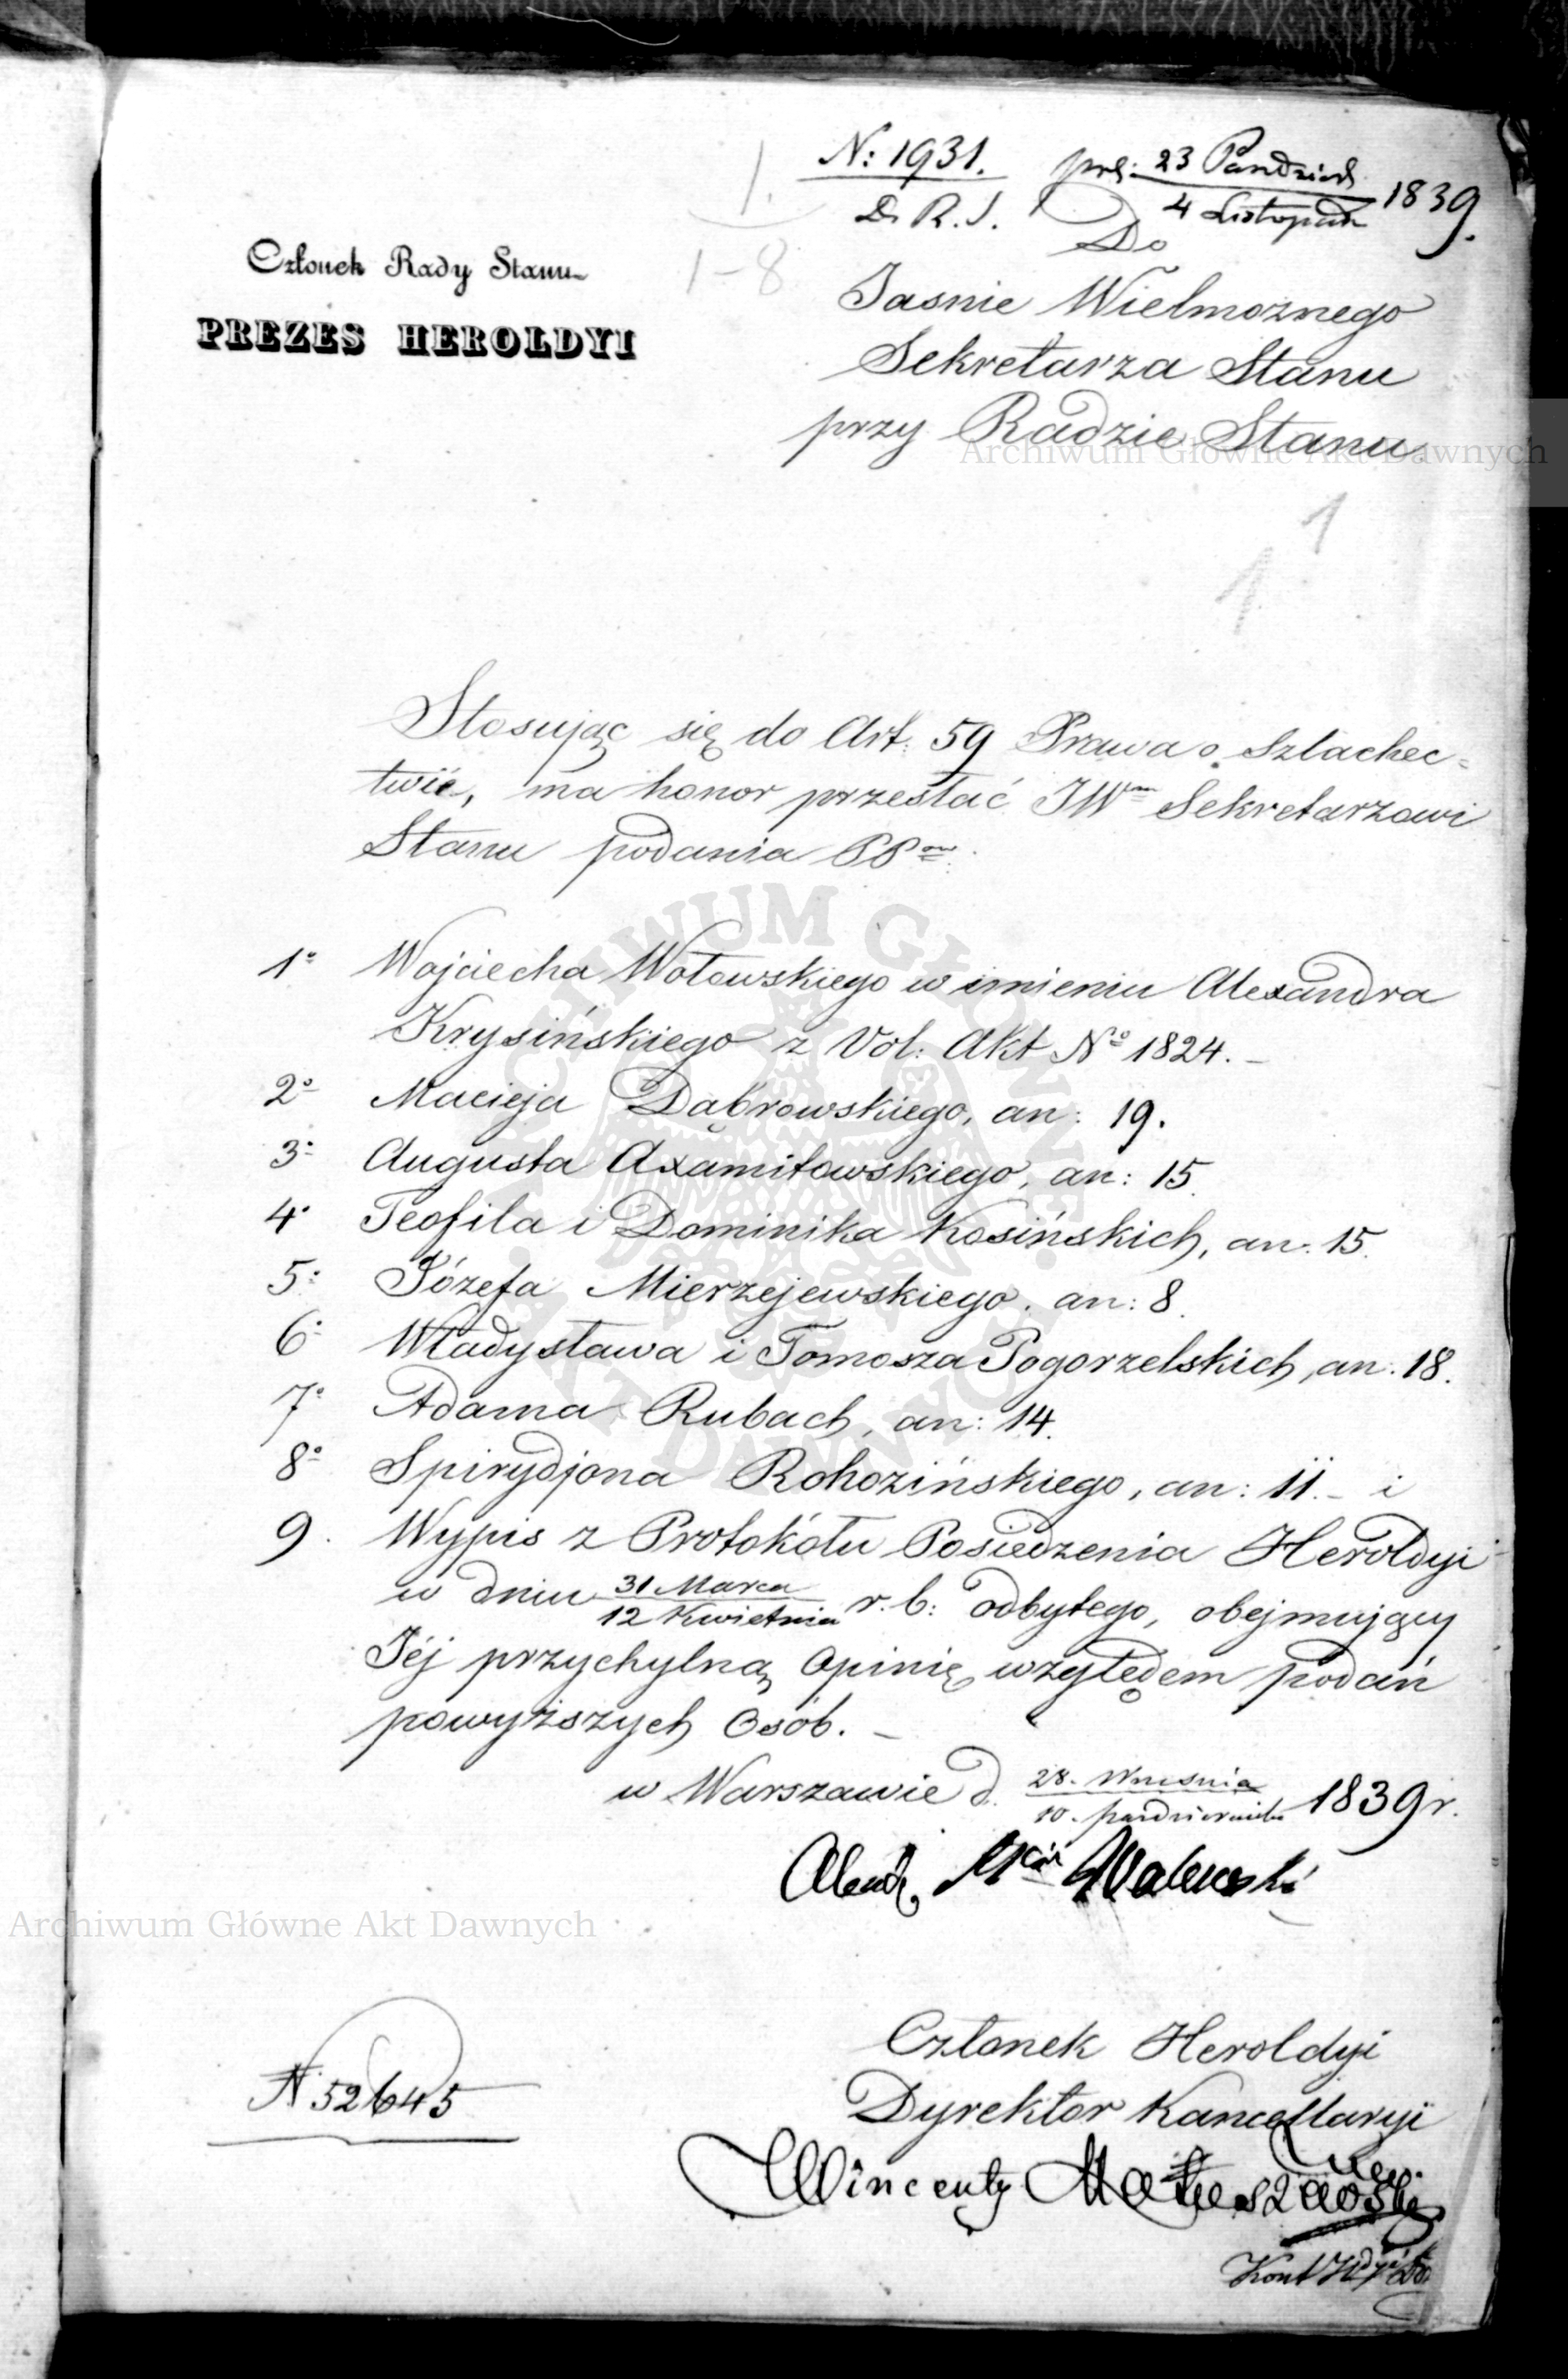 N: 1931.
D. R. S.
pre: 23 Pazdzier
4 Listopada 1839.
1.
1-8
Członek Rady Stanu
PREZES HEROLDYI
Do
Jasnie Wielmożnego
Sekretarza Stanu
przy Radzie Stanu.
Archiwum Główne Akt Dawnych
1
1
Stosując się do Art: 59 Prawa o Szlachec=
twie, ma honor przesłać JWm Sekretarzowi
Stanu podania PPow.
1o Wojciecha Wołowskiego w imieniu Alexandra
Krysińskiego z Vol: Akt No 1824. –
2o Macieja Dąbrowskiego, an: 19.
3o Augusta Axamitowskiego, an: 15.
4o Teofila i Dominika Kosińskich, an: 15.
5o Józefa Mierzejewskiego, an: 8.
6o Władysława i Tomasza Pogorzelskich, an: 18.
7o Adama Rubach, an: 14.
8o Spirydjona Rohozińskiego, an: 11. – i
9. Wypis z Protokółu Posiedzenia Heroldyi
w dniu 31 Marca / 12 Kwietnia r. b: odbytego, obejmujący
Jéj przychylną Opinię względem podań
powyższych Osób. –
w Warszawie d. 28. Września / 10. Października 1839 r.
Alexdr Walewski
Archiwum Główne Akt Dawnych
Członek Heroldyi
Dyrektor Kancellaryi
N 52645
Wincenty Matuszewski
ARCHIWUM GŁÓWNE AKT DAWNYCH